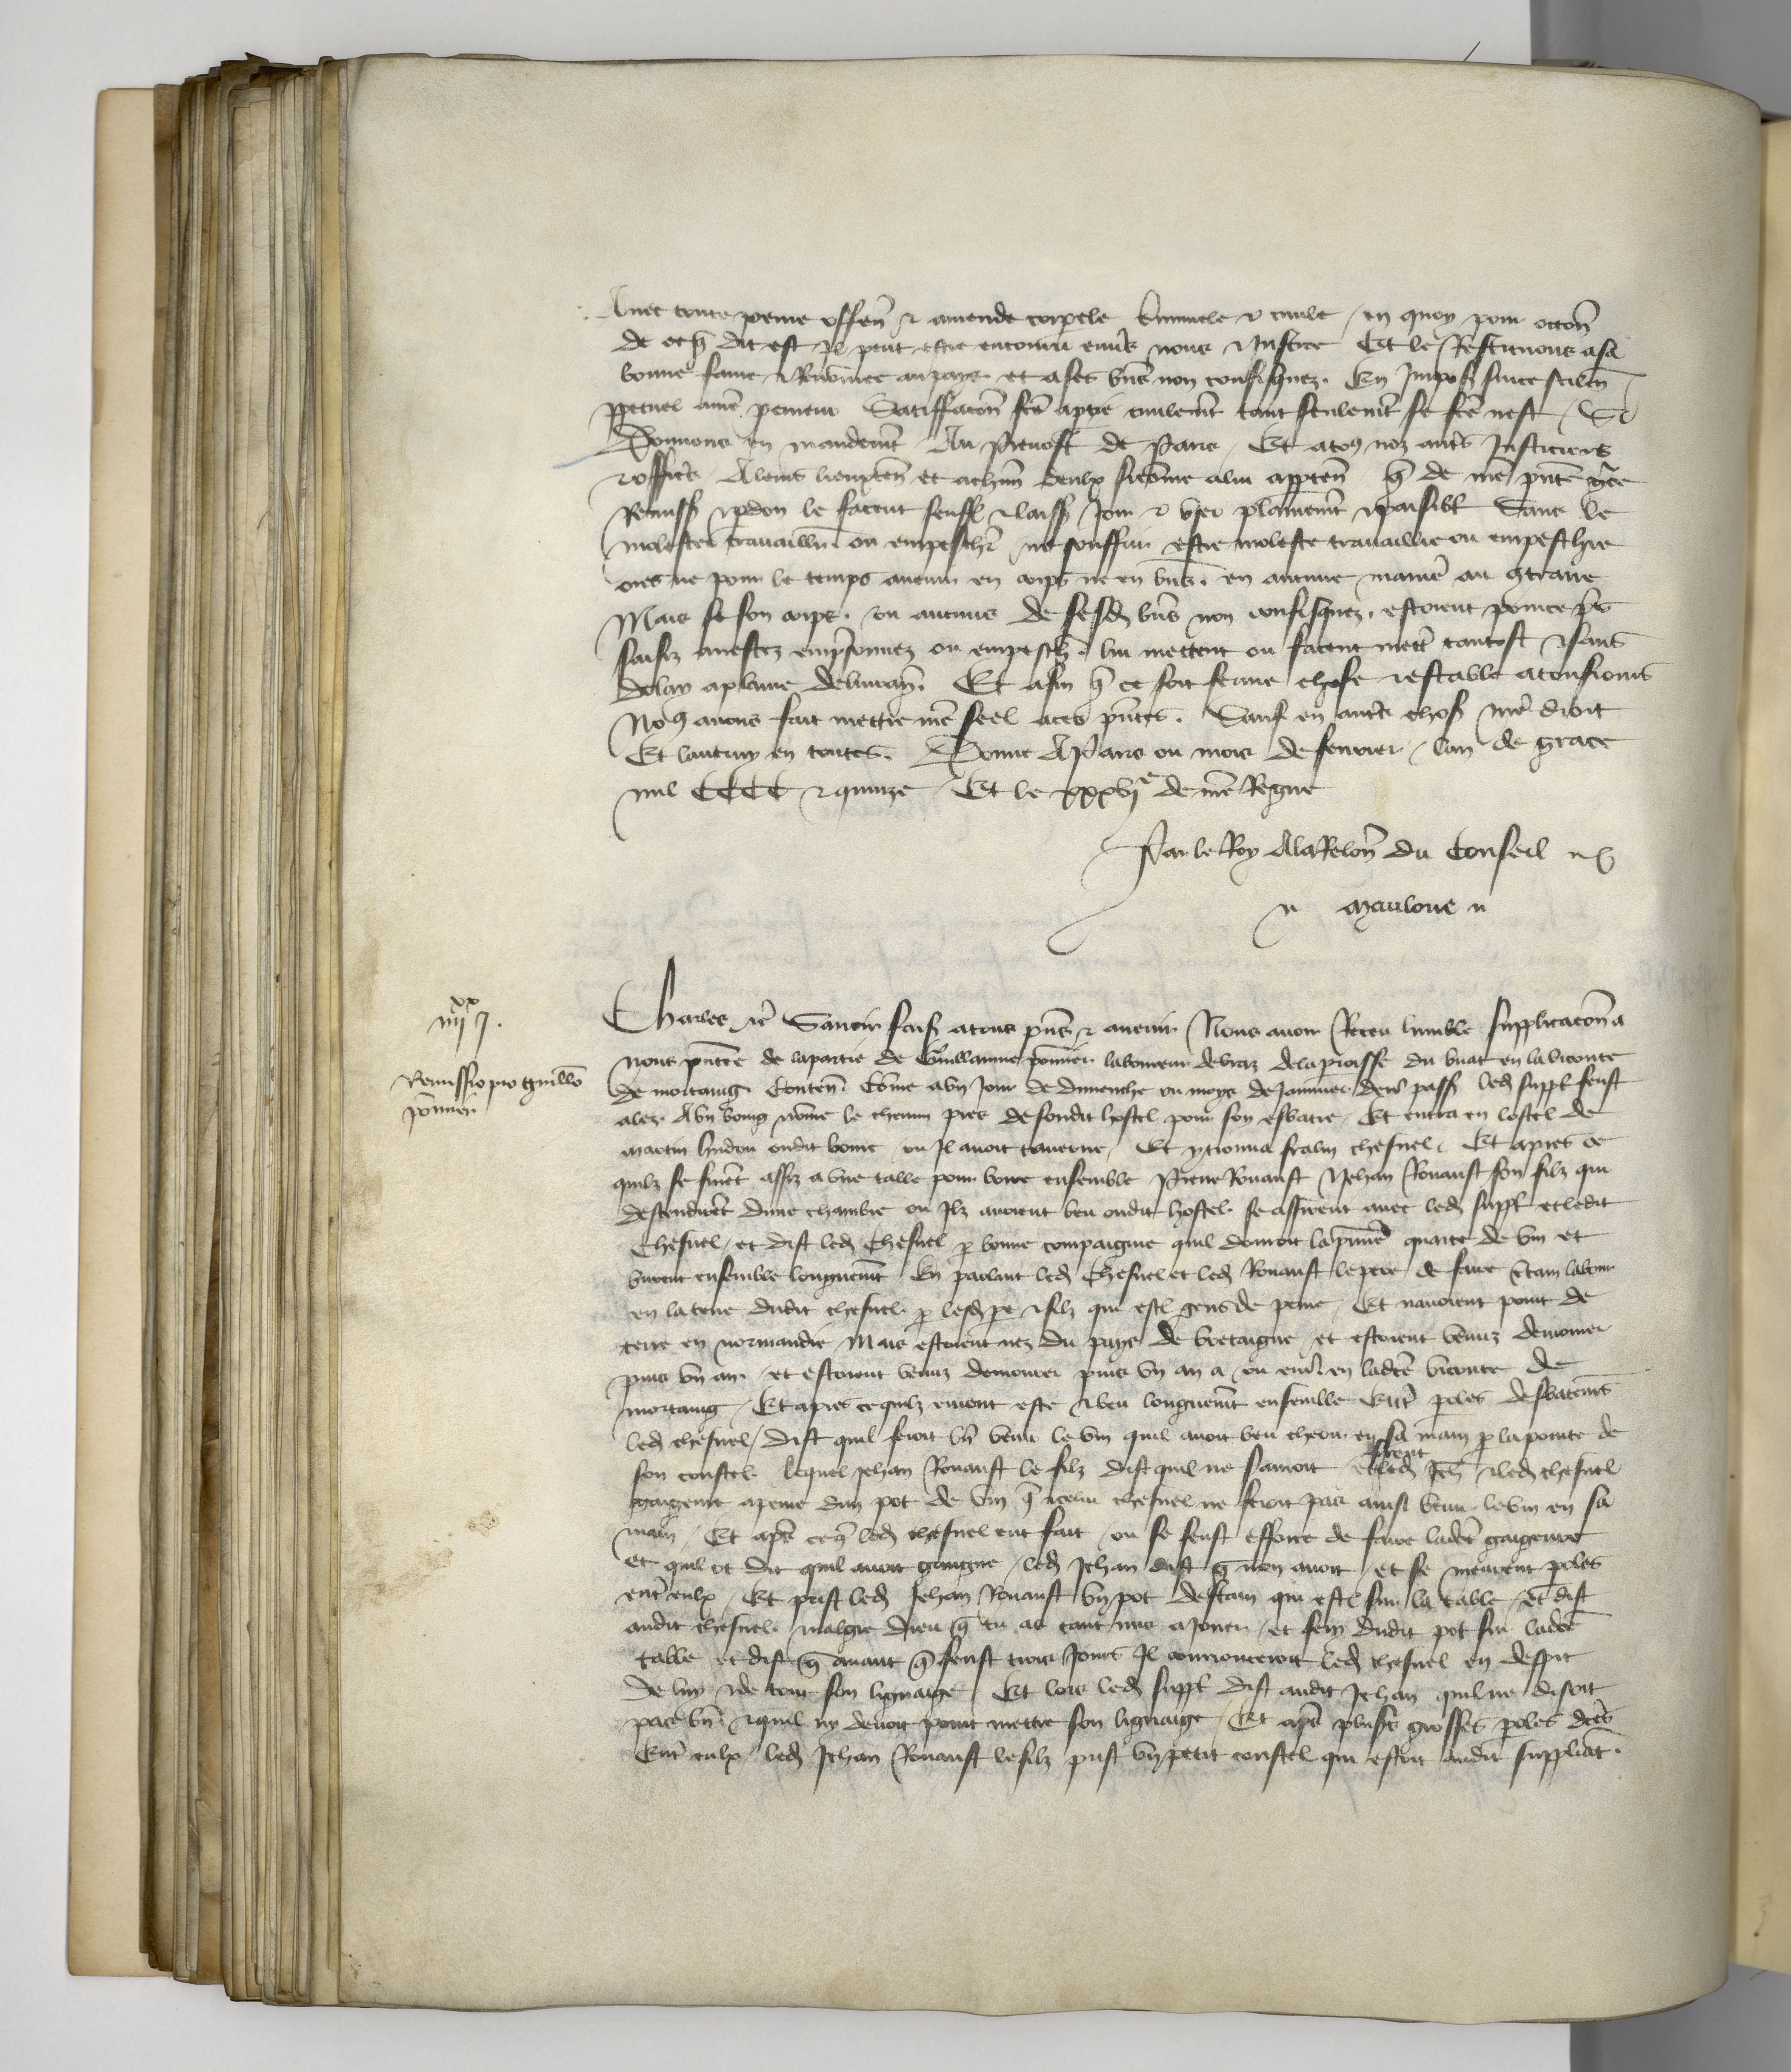 Avec toute peine offen̄ & amende corpele criminele & civile en quoy pour occōn
de ce q̄ dit est Il peut estre encouru envs nous & Justice Et le Restituons a sa
bonne fame & Renōmee au pays et a ses bn̄s non confisquez. En Impost sur ce silen̄
ppetuel a nrē procureur Satiffacōn fcē a ptie civilemt tant seulemt se fcē nest Si
Donnons en mandemt Au prevost de Paris Et a tos noz autrs Justiciers
& officrs A leurs lieuxten̄ et a chun̄ deulx sicōme a lui apptend̄ q̄ de nrē pn̄te grace
Remiss̄ & pdon le facent seuffr̄ & laiss̄ Joir & user plainemt & paisiblt Sans le
molester travaillier ou empescher ne souffrir estre moleste travaillie ou empeschie
ores ne pour le temps avenir en corps ne en biens en aucune manie au ɔtraire
Mais se son corps ou aucuns de sesd bn̄s non confisquez estoient pour ce prs
saisiz arrestez emprisonnez ou empesch. lui mettent ou facent mettr̄ tantost & sans
delay a plaine delivran̄. Et afin q̄ ce soit ferme chose & estable a tousjours
Nos avons fait mettre nrē seel a ces pn̄tes. Sauf en autrs choses nrē droit
Et lautruy en toutes. Donne A Paris ou mois de fevrier lan de grace
mil CCCC & quinze Et le xxxvj e de nrē Regne
Par le Roy A la Relon̄ du Conseil
Mauloue
iiij xx j.
Remissio pro guillō
pōmier
Charles &c̄ Savoir fais̄ a tous pn̄s & avenir Nous avoir Receu humble supplicacōn a
nous pn̄tee de la partie de Guillaume pommier laboureur de braz de la proisse du buat en la viconte
de mortaing Conten̄ Cōme a un Jour de dimenche ou moys de Janvier derr̄ pass̄ led suppl feust
alez A un bourg nōme le chemin pres de son dit hostel pour son esbatre Et entra en lostel de
martin hudou oudit bourc ou Il avoit taverne Et y trouva fralin chesnel. Et apres ce
quilz se furēt assiz a une table pour boire ensemble Pierre Rouaust & Jehan Rouaust son filz qui
descendirēt dune chambre ou Ilz avoient beu oudit hostel se assirent avec led suppl et ledit
Chesnel et dist led Chesnel p bonne compaignie quil donroit la pmiere quarte de vin et
burent ensemble longuemt En parlant led Chesnel et led Rouaust le pere de faire ctain labour
en la terre dudit chesnel p lesd pe & filz qui estl gens de peine Et navoient point de
terre en normandie Mais estoient nez du pays de bretaigne et estoient venuz demourer
puis un an et estoient venuz demourer puis un an a ou env̄ en ladcē viconte de
mortaing Et apres ce quilz eurent este & beu longuemt ensemble Entr̄ poles desbatemēs
led chesnel dist quil feroit bn̄ venir le vin quil avoit beu cheoir en sa main p la pointe de
son coustel lequel Jehan Rouaust le filz dist quil ne sauroit et led Jeh̄ & led chesnel
gaigerent a peine dun pot de vin q̄ icelui chesnel ne feroit pas ainsi venir le vin en sa
main Et aprs ce q̄ led chesnel eut fait ou se feust efforce de faire ladcē gaigeure
et quil et dit quil avoit gaingne led Jehan dist q̄ non avoit et se meurent poles
entr̄ eulx Et prist led Jehan Rouaust un pot destain qui estl sur la table et dist
audit chesnel malgre dieu q̄ tu as tant mis a Jouer et feri dudit pot sur ladcē
table et dist q̄ avant q̄ feust trois Jours Il courrouceroit led chesnel en despit
de luy & de tout son lignaige Et lors led suppl dist audit Jehan quil ne disoit
pas bn̄ & quil ny devoit point mettre son lignaige Et aprs plusrs grosses poles dctēs
Entr̄ eulx led Jehan Rouaust le filz prist un petit coustel qui estoit audit suppliāt.